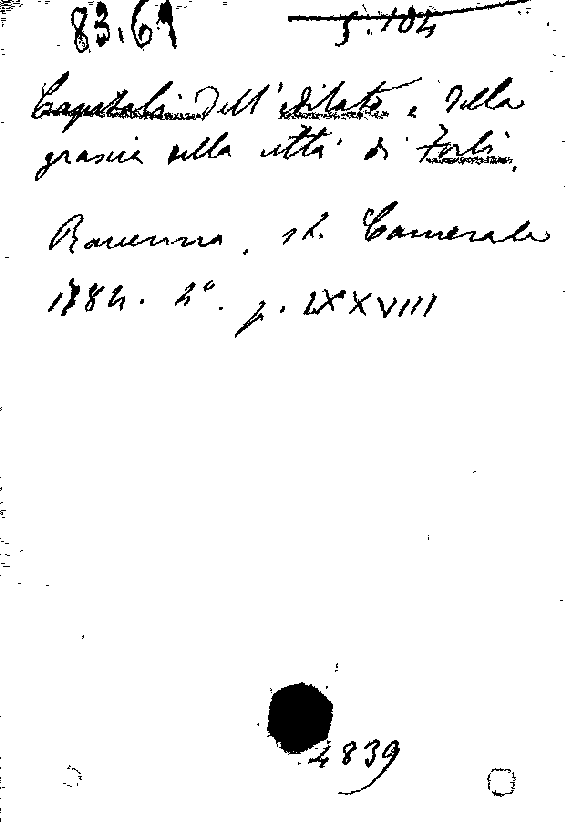 83.69
5.104
Capitoli dell' edilato e della
grascia della città di Forlì.
Ravenna, st. Camerale
1784. 4°. p. LXXVIII
4839